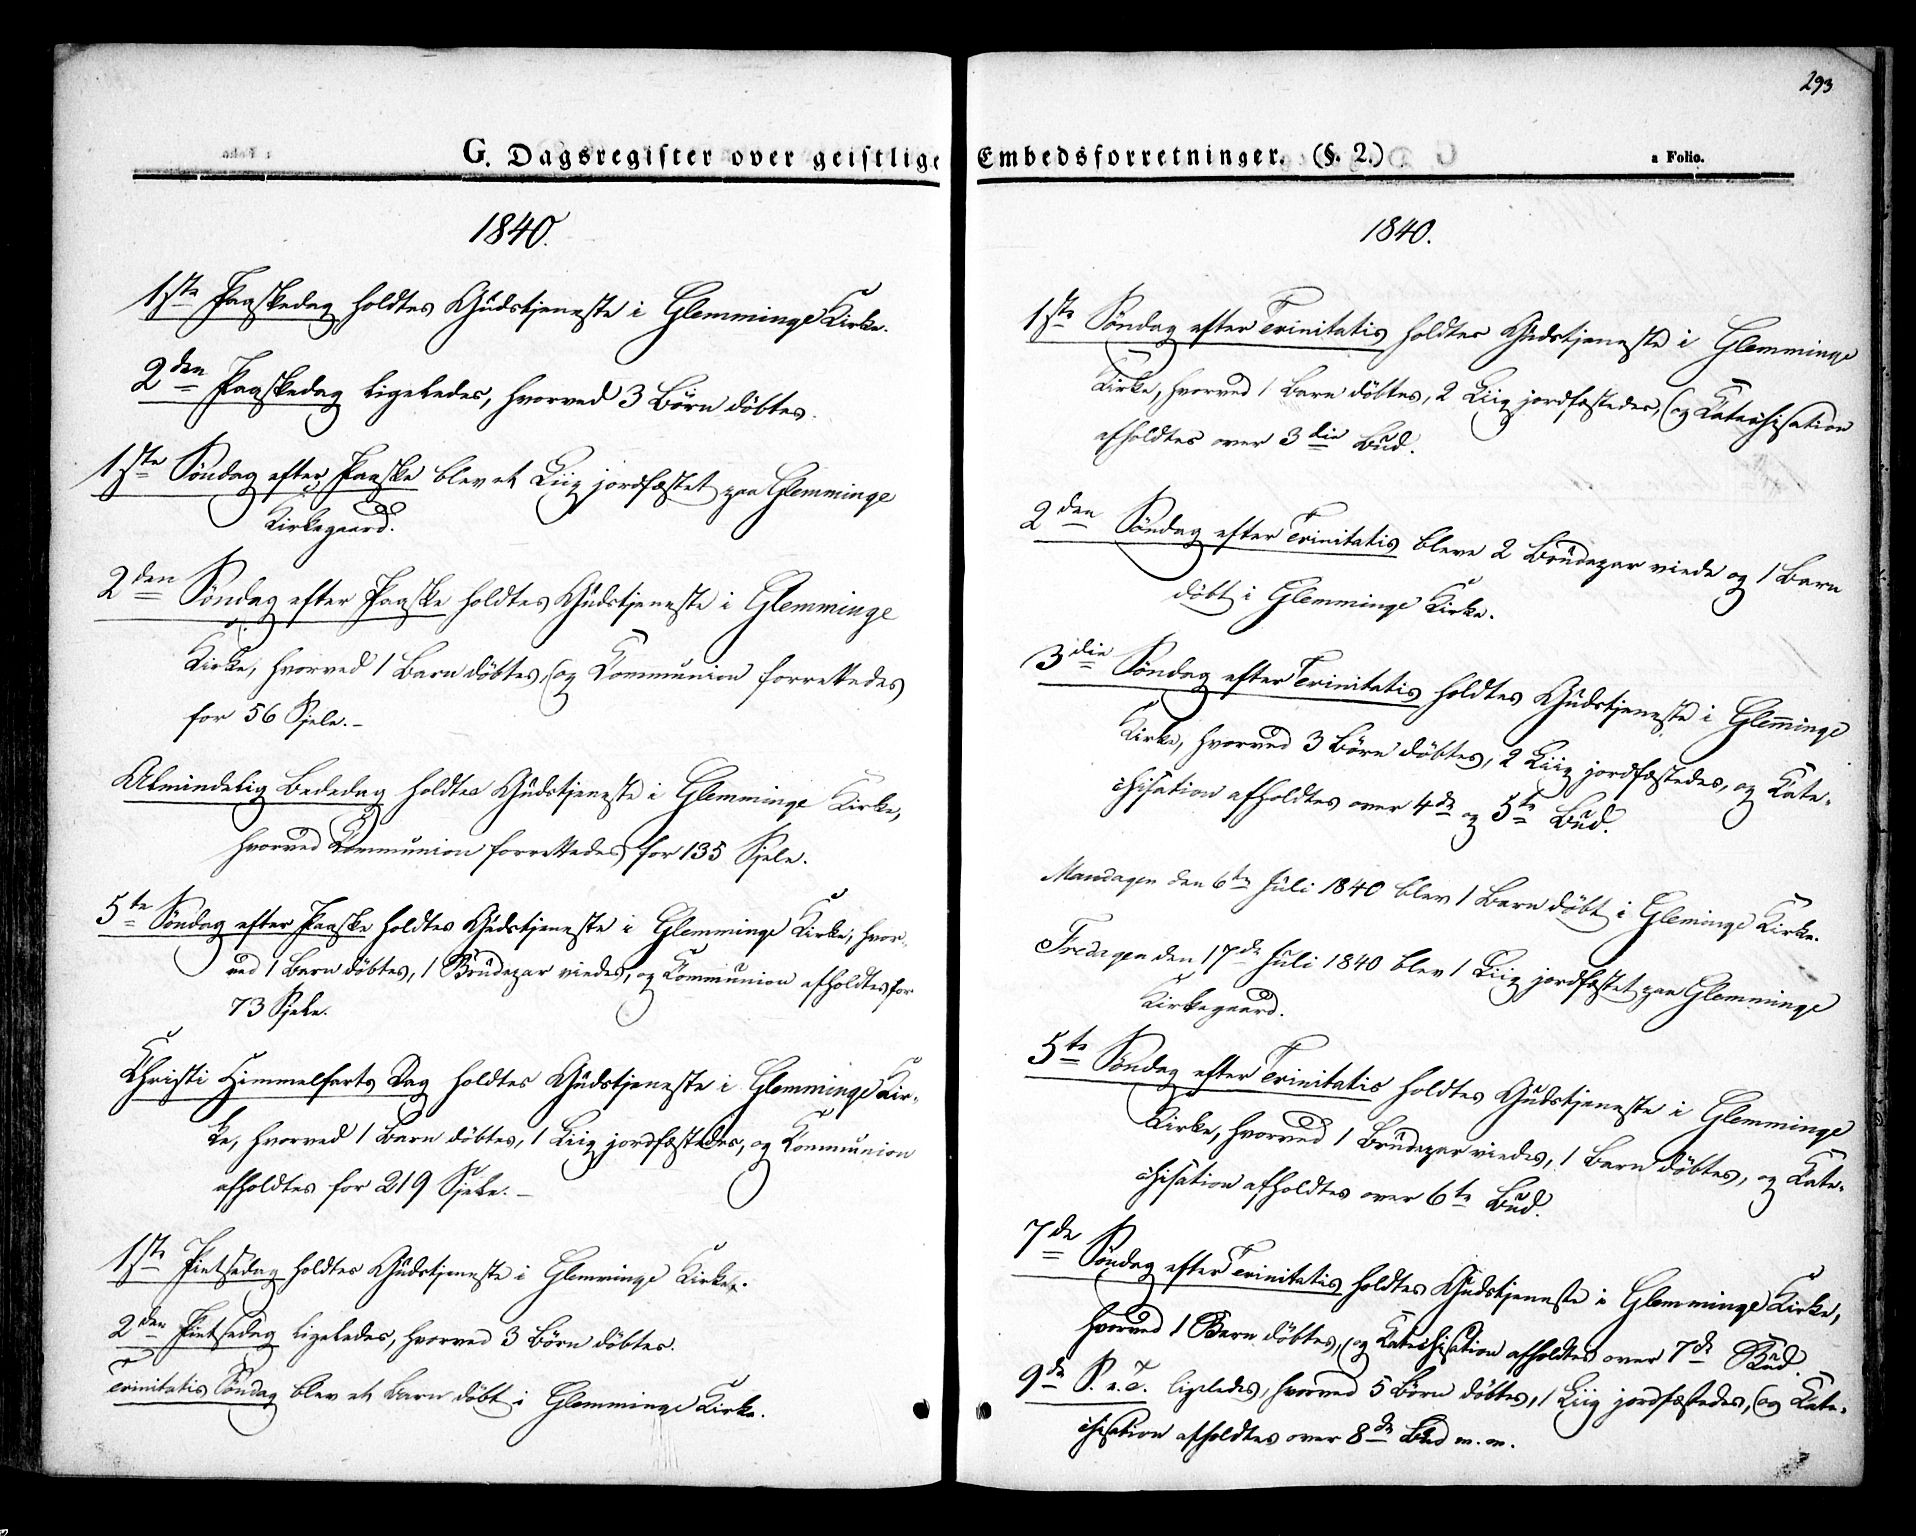 293
G. Dagsregister over geistlige
1840.
1ste Paaskedag holdtes Gudstjeneste i Glemminge Kirke.
2den Paaskedag ligeledes, hvorved 3 Börn döbtes.
1ste Söndag efter Paaske blev et Liig jordfæstet paa Glemminge
Kirkegaard.
2den Söndag efter Paaske holdtes Gudstjeneste i Glemminge
Kirke, hvorved 1 Barn döbtes, og Communion forrettedes
for 56 Sjele.-
Almindelig Bededag holdtes Gudstjeneste i Glemminge Kirke,
hvorved Communion forrettedes for 135 Sjele.
5te Söndag efter Paaske holdtes Gudstjeneste i Glemminge Kirke, hvor-
ved 1 Barn döbtes, 1 Brudepar viedes, og Communion afholdtes for
73 Sjele.
Christi Himmelfarts Dag holdtes Gudstjeneste i Glemminge Kir-
ke, hvorved 1 Barn döbtes, 1 Liig jordfæstedes, og Communion
afholdtes for 219 Sjele.-
1ste Pintsedag holdtes Gudstjeneste i Glemminge Kirke.
2den Pintsedag ligeledes, hvorved 3 Börn döbtes.
Trinitatis Söndag blev et Barn döbt i Glemminge Kirke.
Embedsforretninger. (§. 2.)
a Folio.
1840.
1ste Söndag efter Trinitatis holdtes Gudstjeneste i Glemminge
Kirke, hvorved 1 Barn döbtes, 2 Liig jordfæstedes, og Katechisation
afholdtes over 3die Bud.
2den Söndag efter Trinitatis bleve 2 Brudepar viede og 1 Barn
döbt i Glemminge Kirke.
3die Söndag efter Trinitatis holdtes Gudstjeneste i Glem̅inge
Kirke, hvorved 3 Börn döbtes, 2 Liig jordfæstedes, og Kate-
chisation afholdtes over 4de og 5te Bud.
Mandagen den 6te Juli 1840 blev 1 Barn döbt i Gleminge Kirke.
Fredagen den 17de Juli 1840 blev 1 Liig jordfæstet paa Glemminge
Kirkegaard.
5te Söndag efter Trinitatis holdtes Gudstjeneste i Glemminge
Kirke, hvorved 1 Brudepar viedes, 1 Barn döbtes, og Kate-
chisation afholdtes over 6te Bud.
7de Söndag efter Trinitatis holdtes Gudstjeneste i Glemminge Kirke,
hvorved 1 Barn döbtes, og Katechisation afholdtes over 7de Bud.
9de S. e. T. ligeledes, hvorved 5 Börn döbtes, 1 Liig jordfæstedes, og Kate-
chisation afholdtes over 8de Bud m. m.